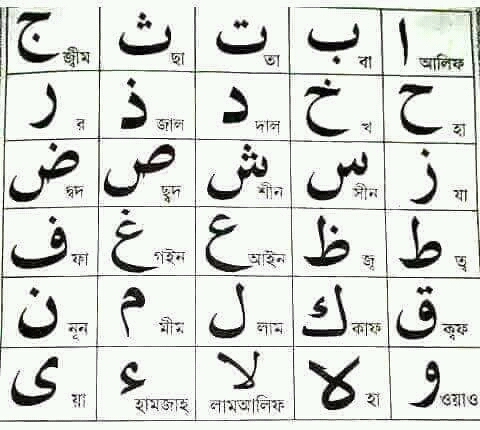 ا আলিফ ب বা ت তা ث ছা ج জ্বীম
ح হা خ খ د দাল ذ জাল ر র
ز যা س সীন ش শীন ص ছ্বদ ض দ্বদ
ط ত্ব ظ জ্ব ع আইন غ গইন ف ফা
ق ক্বফ ك কাফ ل লাম م মীম ن নূন
و ওয়াও ه হা لا লামআলিফ ء হামজাহ ى য়া